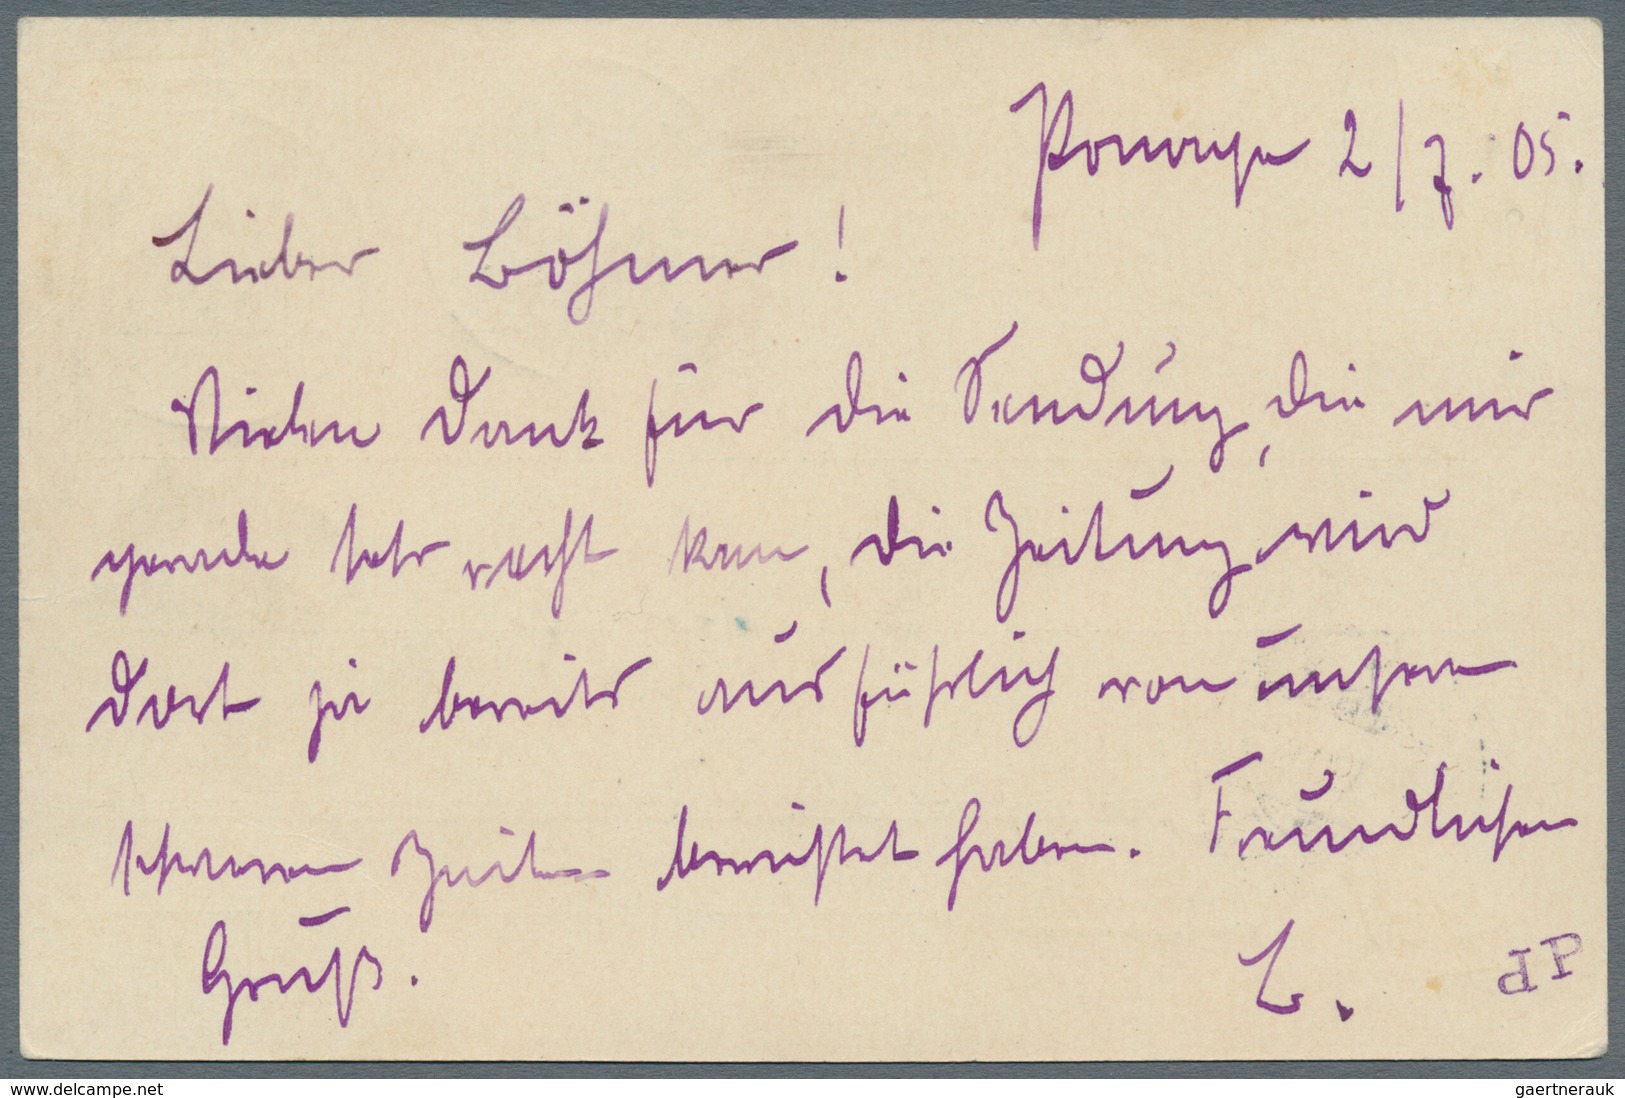 Ponape 2/7. 05.
Lieber Böhmer!
Vielen Dank für die Sendung, die mir
gerade sehr recht kam, die Zeitung wird
dort ja bereits ausführlich von unseren
schweren Zeiten berichtet haben. Freundlichen
Gruß.
L.
dP
www.delcampe.net
gaertnerauk